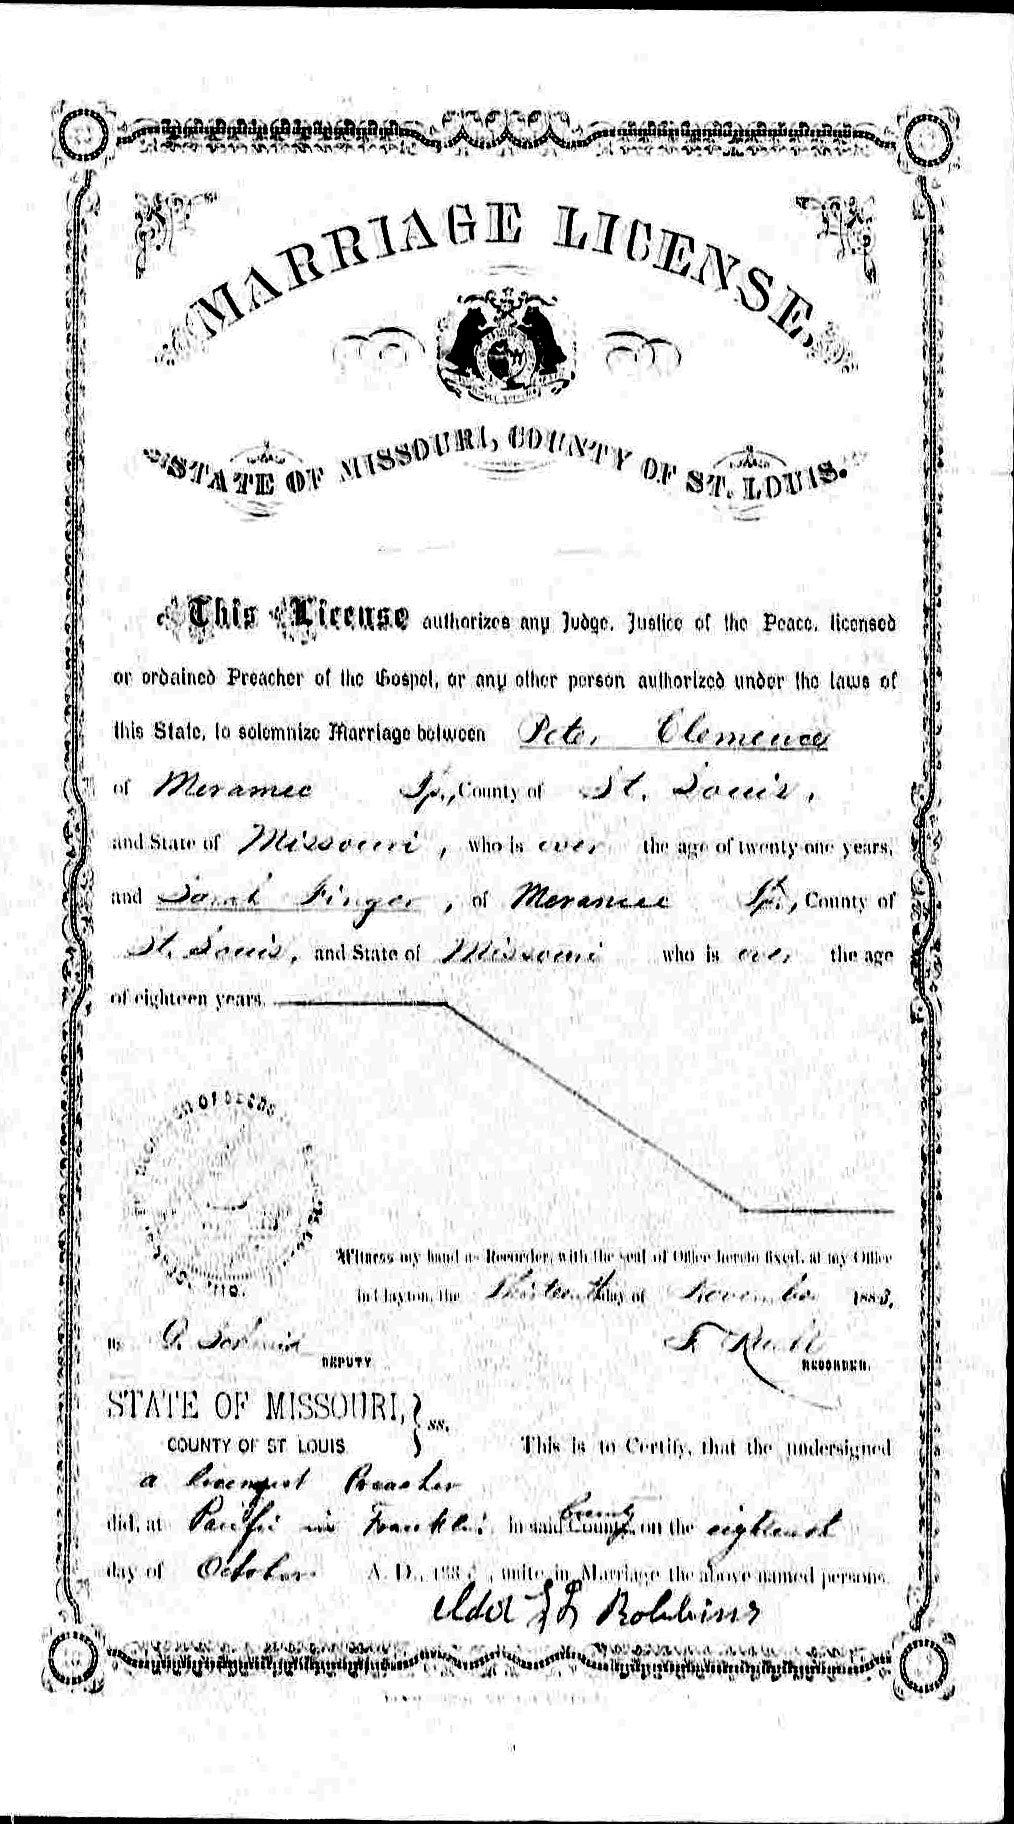 MARRIAGE LICENSE.
STATE OF MISSOURI, COUNTY OF ST. LOUIS.
This License authorizes any Judge, Justice of the Peace, licensed
or ordained Preacher of the Gospel, or any other person authorized under the laws of
this State, to solemnize Marriage between Peter Clemence
of Meramec Tp., County of St. Louis,
and State of Missouri, who is over the age of twenty-one years,
and Sarah Finger, of Meramec Tp., County of
St. Louis, and State of Missouri who is over the age
of eighteen years.
RECORDER OF DEEDS
MO.
Witness my hand as Recorder, with the seal of Office hereto fixed, at my Office
in Clayton, the Thirteenth day of November 1883.
By G.
DEPUTY
F.
RECORDER.
STATE OF MISSOURI,
COUNTY OF ST. LOUIS } ss.
This is to Certify, that the undersigned
a Preacher
did, at Pacific in Franklin County in said County, on the
day of October A. D., 188 , unite in Marriage the above named persons.
elder Robbins